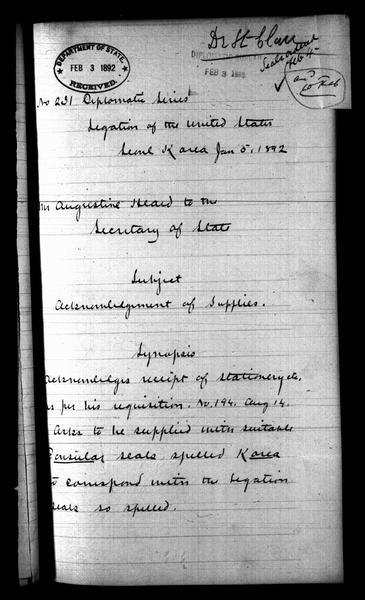 Dr St Clair
DEPARTMENT OF STATE,
FEB 3 1892
RECEIVED.
FEB 3 1892
Feb 4
No 231 Diplomatic Series
Legation of the United States
Seoul Korea Jan 5, 1892
Mr Augustine Heard to the
Secretary of State
Subject
Acknowledgment of Supplies.
Synopsis
Acknowledges receipt of stationery etc.
as per his requisition. No, 194. Aug 14.
Asks to be supplied with suitable
Consular seals spelled Korea
to correspond with the Legation
seals so spelled.